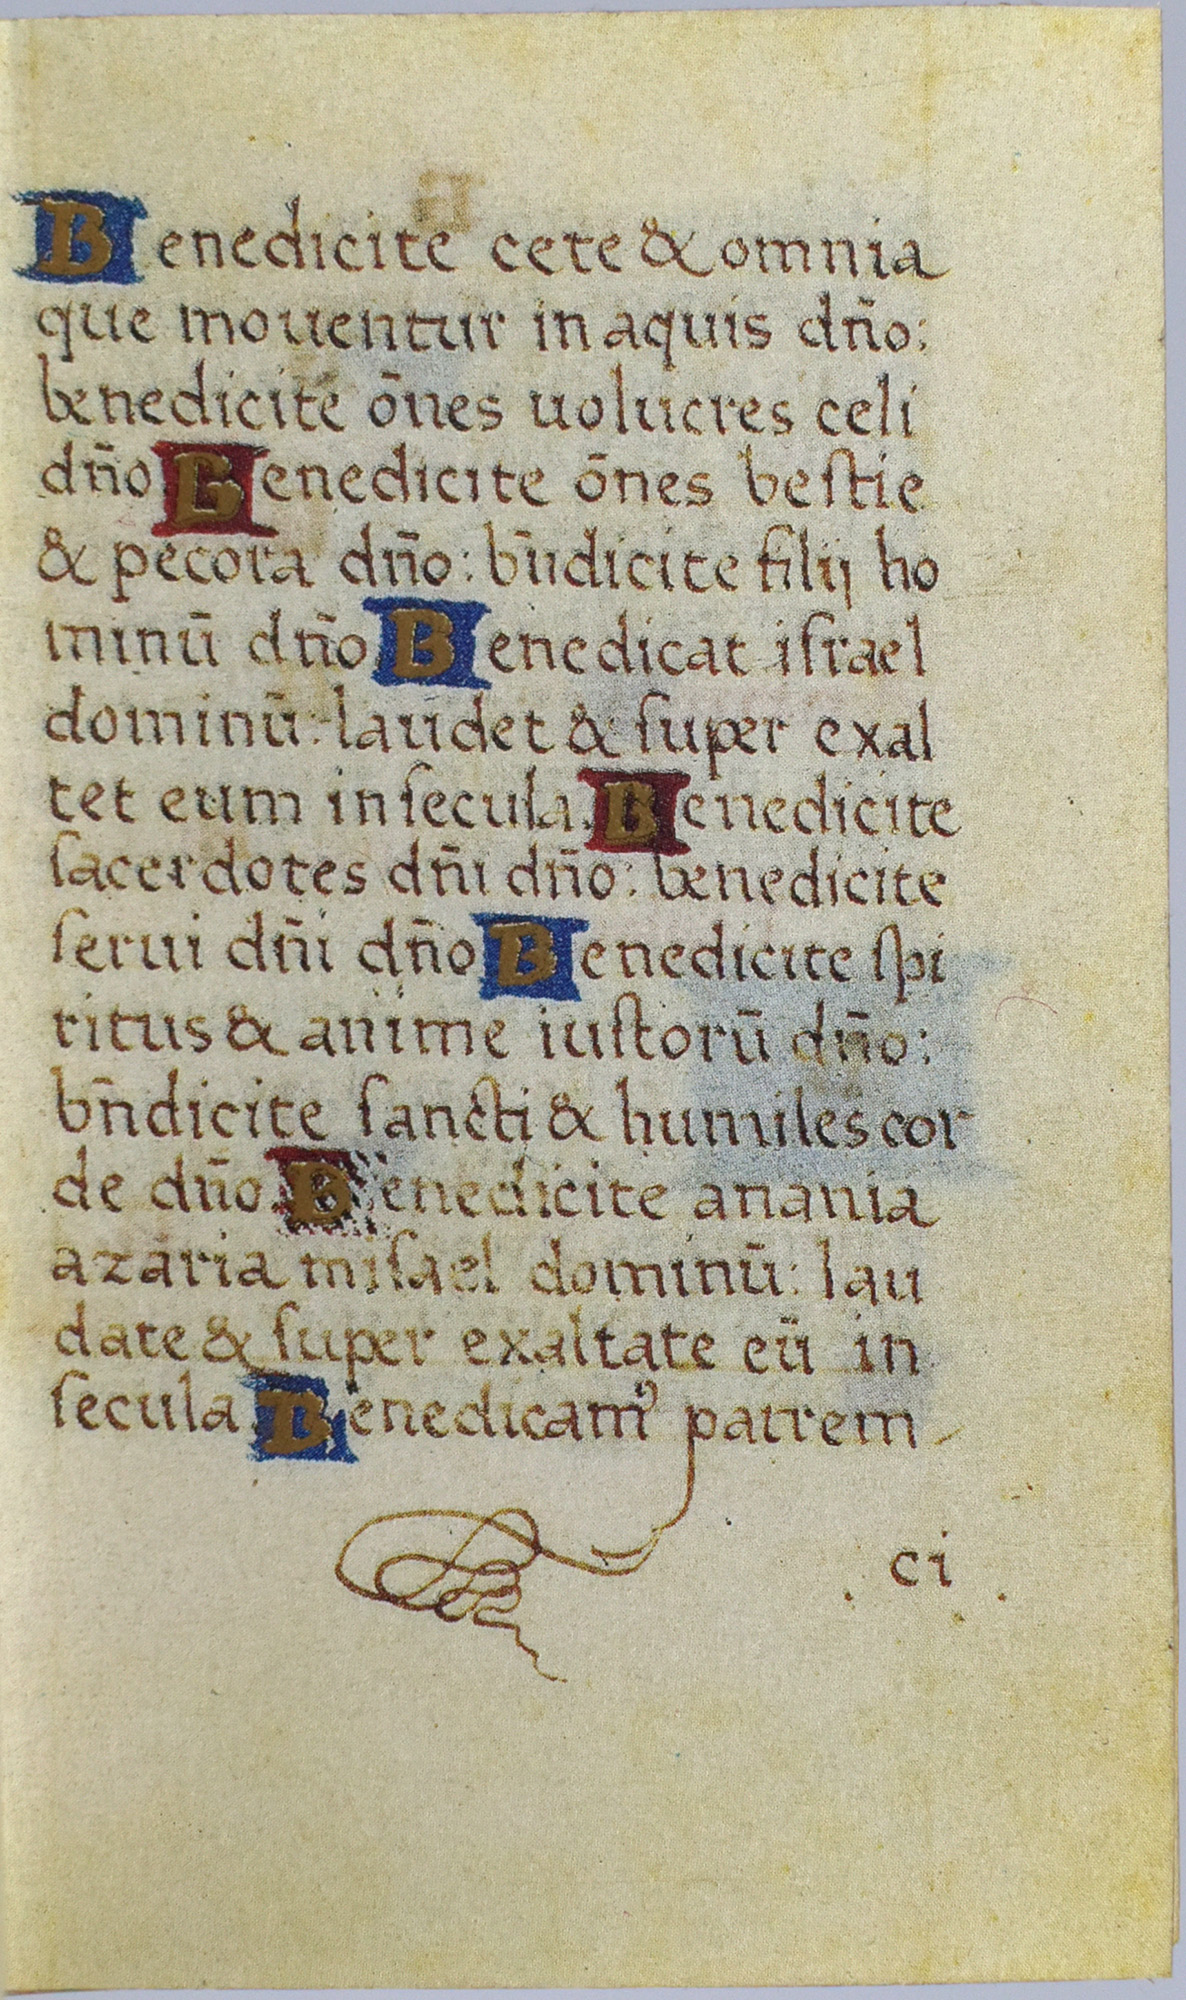 Benedicite cete & omnia
que mouentur in aquis dn̄o:
benedicite ōnes uolucres celi
dn̄o Benedicite ōnes beſtie
& pecora dn̄o: bn̄dicite filij ho
minū dn̄o Benedicat iſrael
dominū: laudet & ſuper exal
tet eum in ſecula. Benedicite
ſacerdotes dn̄i dn̄o: benedicite
ſerui dn̄i dn̄o Benedicite ſpi
ritus & anime iuſtorū dn̄o:
bn̄dicite ſancti & humiles cor
de dn̄o. Benedicite anania
azaria miſael dominū: lau
date & ſuper exaltate eū in
ſecula. Benedicamꝰ patrem
ci